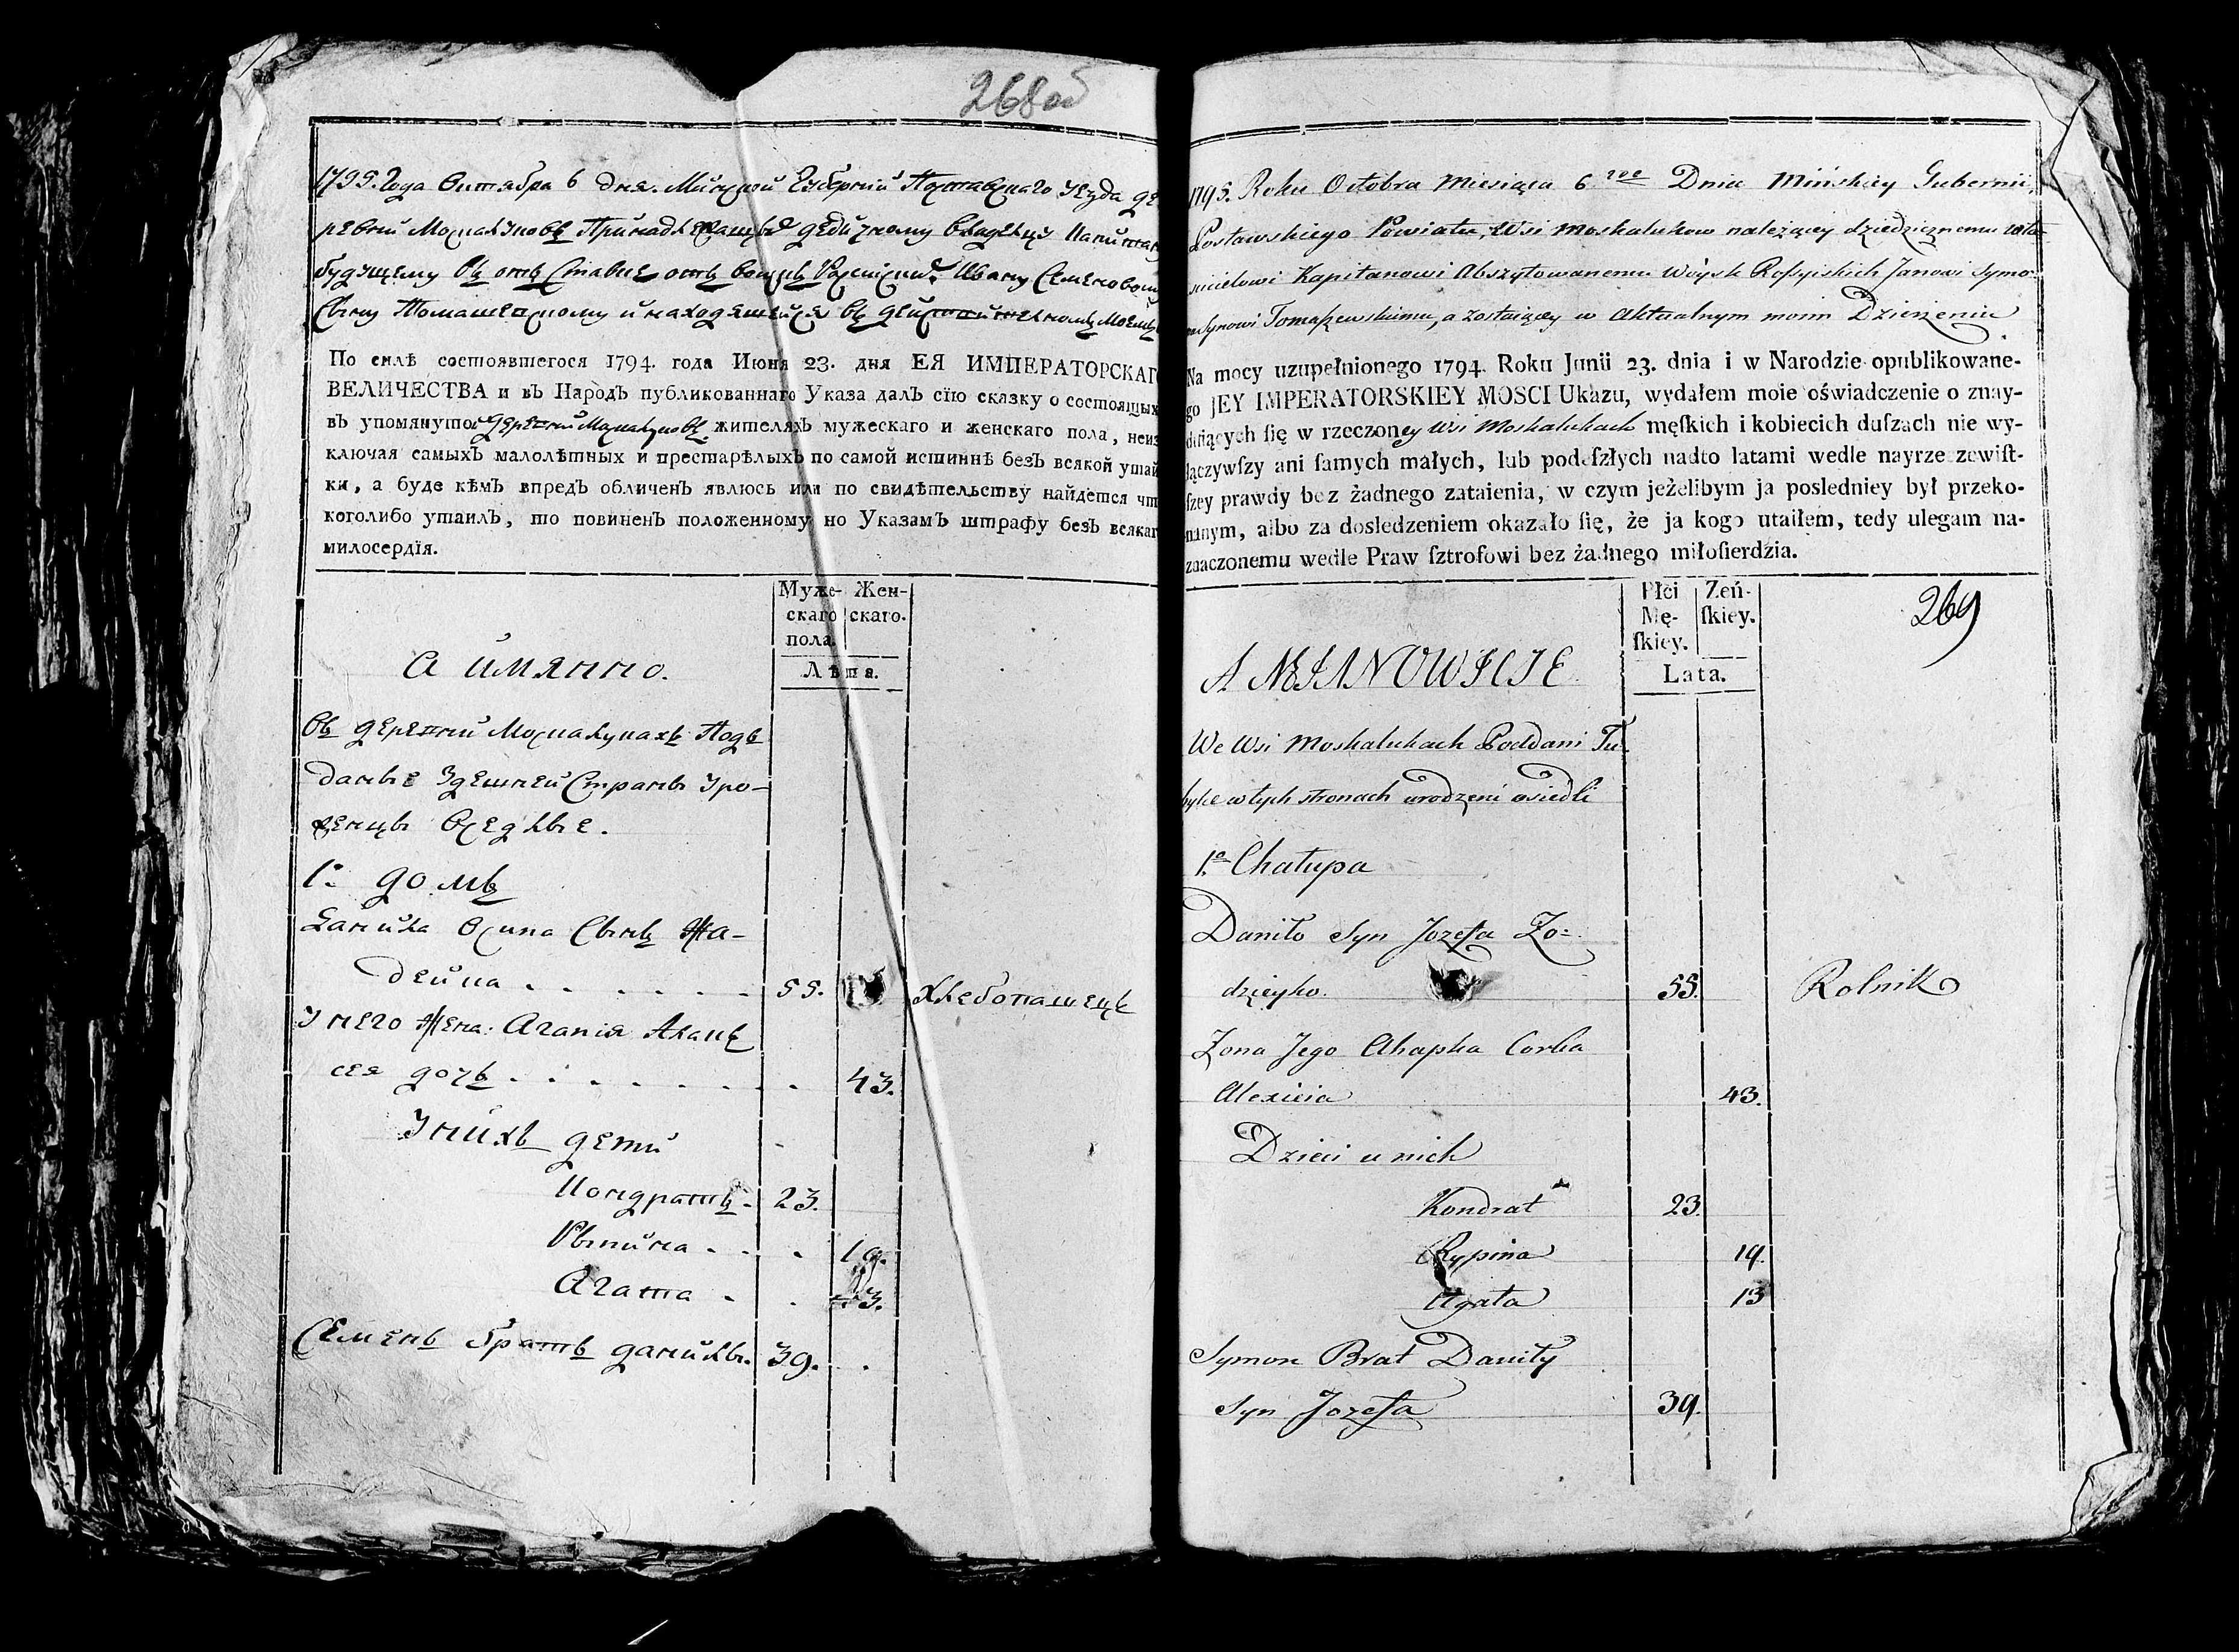 268об
1795. Года Октября 6 дня. Минской Губернии Поставского уезда де
ревни Москалуковъ Принадлежащей дедичному владельцу Капитану
будущему въ отъ Ставке отъ воискъ Росиских Ивану Семенову
Сыну Томашевскому и находящейся въ действительномъ моемъ
По силѣ состоявшегося 1794. года Июня 23. дня ЕЯ ИМПЕРАТОРСКАГО
ВЕЛИЧЕСТВА и въ Народъ публикованнаго Указа далъ сїю сказку о состоящыхъ
въ упомянутой деревни Москалуковъ жителяхъ мужескаго и женскаго пола, неис
ключая самыхъ малолѣтныхъ и престарѣлыхъ по самой истиннѣ безъ всякой утай
ки, а буде кѣмъ впредъ обличенъ явлюсь или по свидѣтельству найдется что
коголибо утаилъ, то повиненъ положенному но Указамъ штрафу безъ всякаго
милосердїя.
Муже- Жен-
скаго скаго.
пола.
а имянно. Лѣта.
въ деревни Москалукахъ Подъ
даные Здешней Страны Уро-
женцы Оседлые.
1е домъ
Данила Осипа Сынъ Жа-
дейка . . . . . . 55. Хлебопашецъ
У него Жена: Агапия Алек
сея дочъ . . . . . . . . 43.
У нихъ дети -
Кондратъ - 23.
Рыпина . . . 19.
Агата . . 13.
Семенъ братъ данилы. 39. .
1795. Roku Octobra Miesiąca 6 goe Dnia Mińskiey Gubernii,
Postawskiego Powiatu, Wsi Moskalukow należącey dziedzicznemu wła-
scicielowi Kapitanowi Abszytowanemu Woysk Rossyiskich Janowi Symo-
na Synowi Tomaszewskiemu, a zostaiącey w Aktualnym moim Dzierżeniu
Na mocy uzupełnionego 1794. Roku Junii 23. dnia i w Narodzie opublikowane-
go JEY IMPERATORSKIEY MOSCI Ukazu, wydałem moie oświadczenie o znay-
duiących ſię w rzeczoney Wsi Moskalukach męſkich i kobiecich duſzach nie wy-
łączywſzy ani ſamych małych, lub podeſzłych nadto latami wedle nayrzeczewiſt-
ſzey prawdy bez żadnego zataienia, w czym jeżelibym ja posledniey był przeko-
nanym, albo za dosledzeniem okazało ſię, że ja kogo utaiłem, tedy ulegam na-
znaczonemu wedle Praw ſztrofowi bez żadnego miłoſierdzia.
Płci Zeń-
Mę- ſkiey.
ſkiey.
269
A MIANOWICIE Lata.
We Wsi Moskalukach Poddani Tu-
byłce w tych stronach urodzeni osiedli
1.a Chałupa
Daniło Syn Jozefa Zo=
dzieyko. 55. Rolnik
Zona Jego Ahapka Corka
Alexieia 43.
Dzieci u nich
Kondrat 23.
Rypina 19.
Agata 13
Symon Brat Daniły
Syn Jozefa 39.